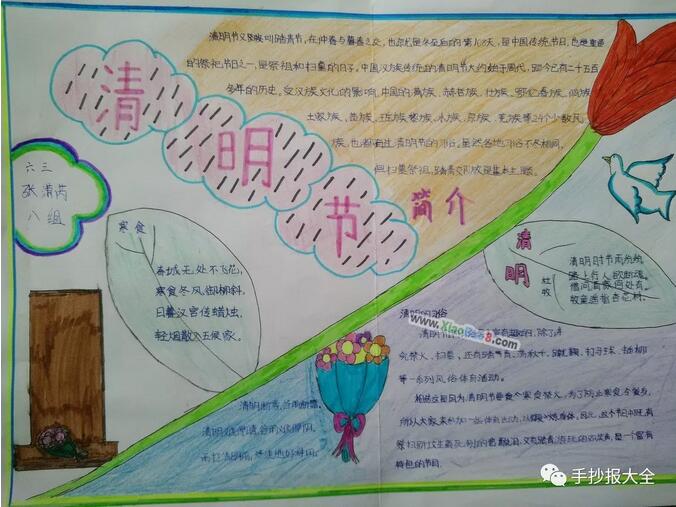 清明节又叫踏青节,在仲春与暮春之交,也就是冬至后的第108天,是中国传统节日,也是重要
的祭祀节日之一,是祭祖和扫墓的日子。中国汉族传统的清明节大约始于周代,距今已有二千五百
多年的历史。受汉族文化的影响,中国的满族、赫哲族、壮族、鄂伦春族、侗族
土家族、苗族、瑶族、黎族、水族、京族、羌族等24个少数民
族,也都有过清明节的习俗。虽然各地习俗不尽相同,
但扫墓祭祖、踏青郊游是基本主题。
清明节
简介
六三
张清芮
八组
寒食
春城无处不飞花,
寒食东风御柳斜。
日暮汉宫传蜡烛,
轻烟散入五侯家。
清明
杜牧
清明时节雨纷纷
路上行人欲断魂。
借问酒家何处有,
牧童遥指杏花村。
清明的习俗
www.XiaoBao8.com
究禁火、扫墓,还有踏青、荡秋千、蹴鞠、打马球、插柳
等一系列风俗体育活动。
相传这是因为清明节要寒食禁火,为了防止寒食冷餐伤
所以大家来参加一些体育活动,以锻炼身体。因此,这个节日中既有
是一个富有
特色的节日.
清明断雪,谷雨断霜。
手抄报大全